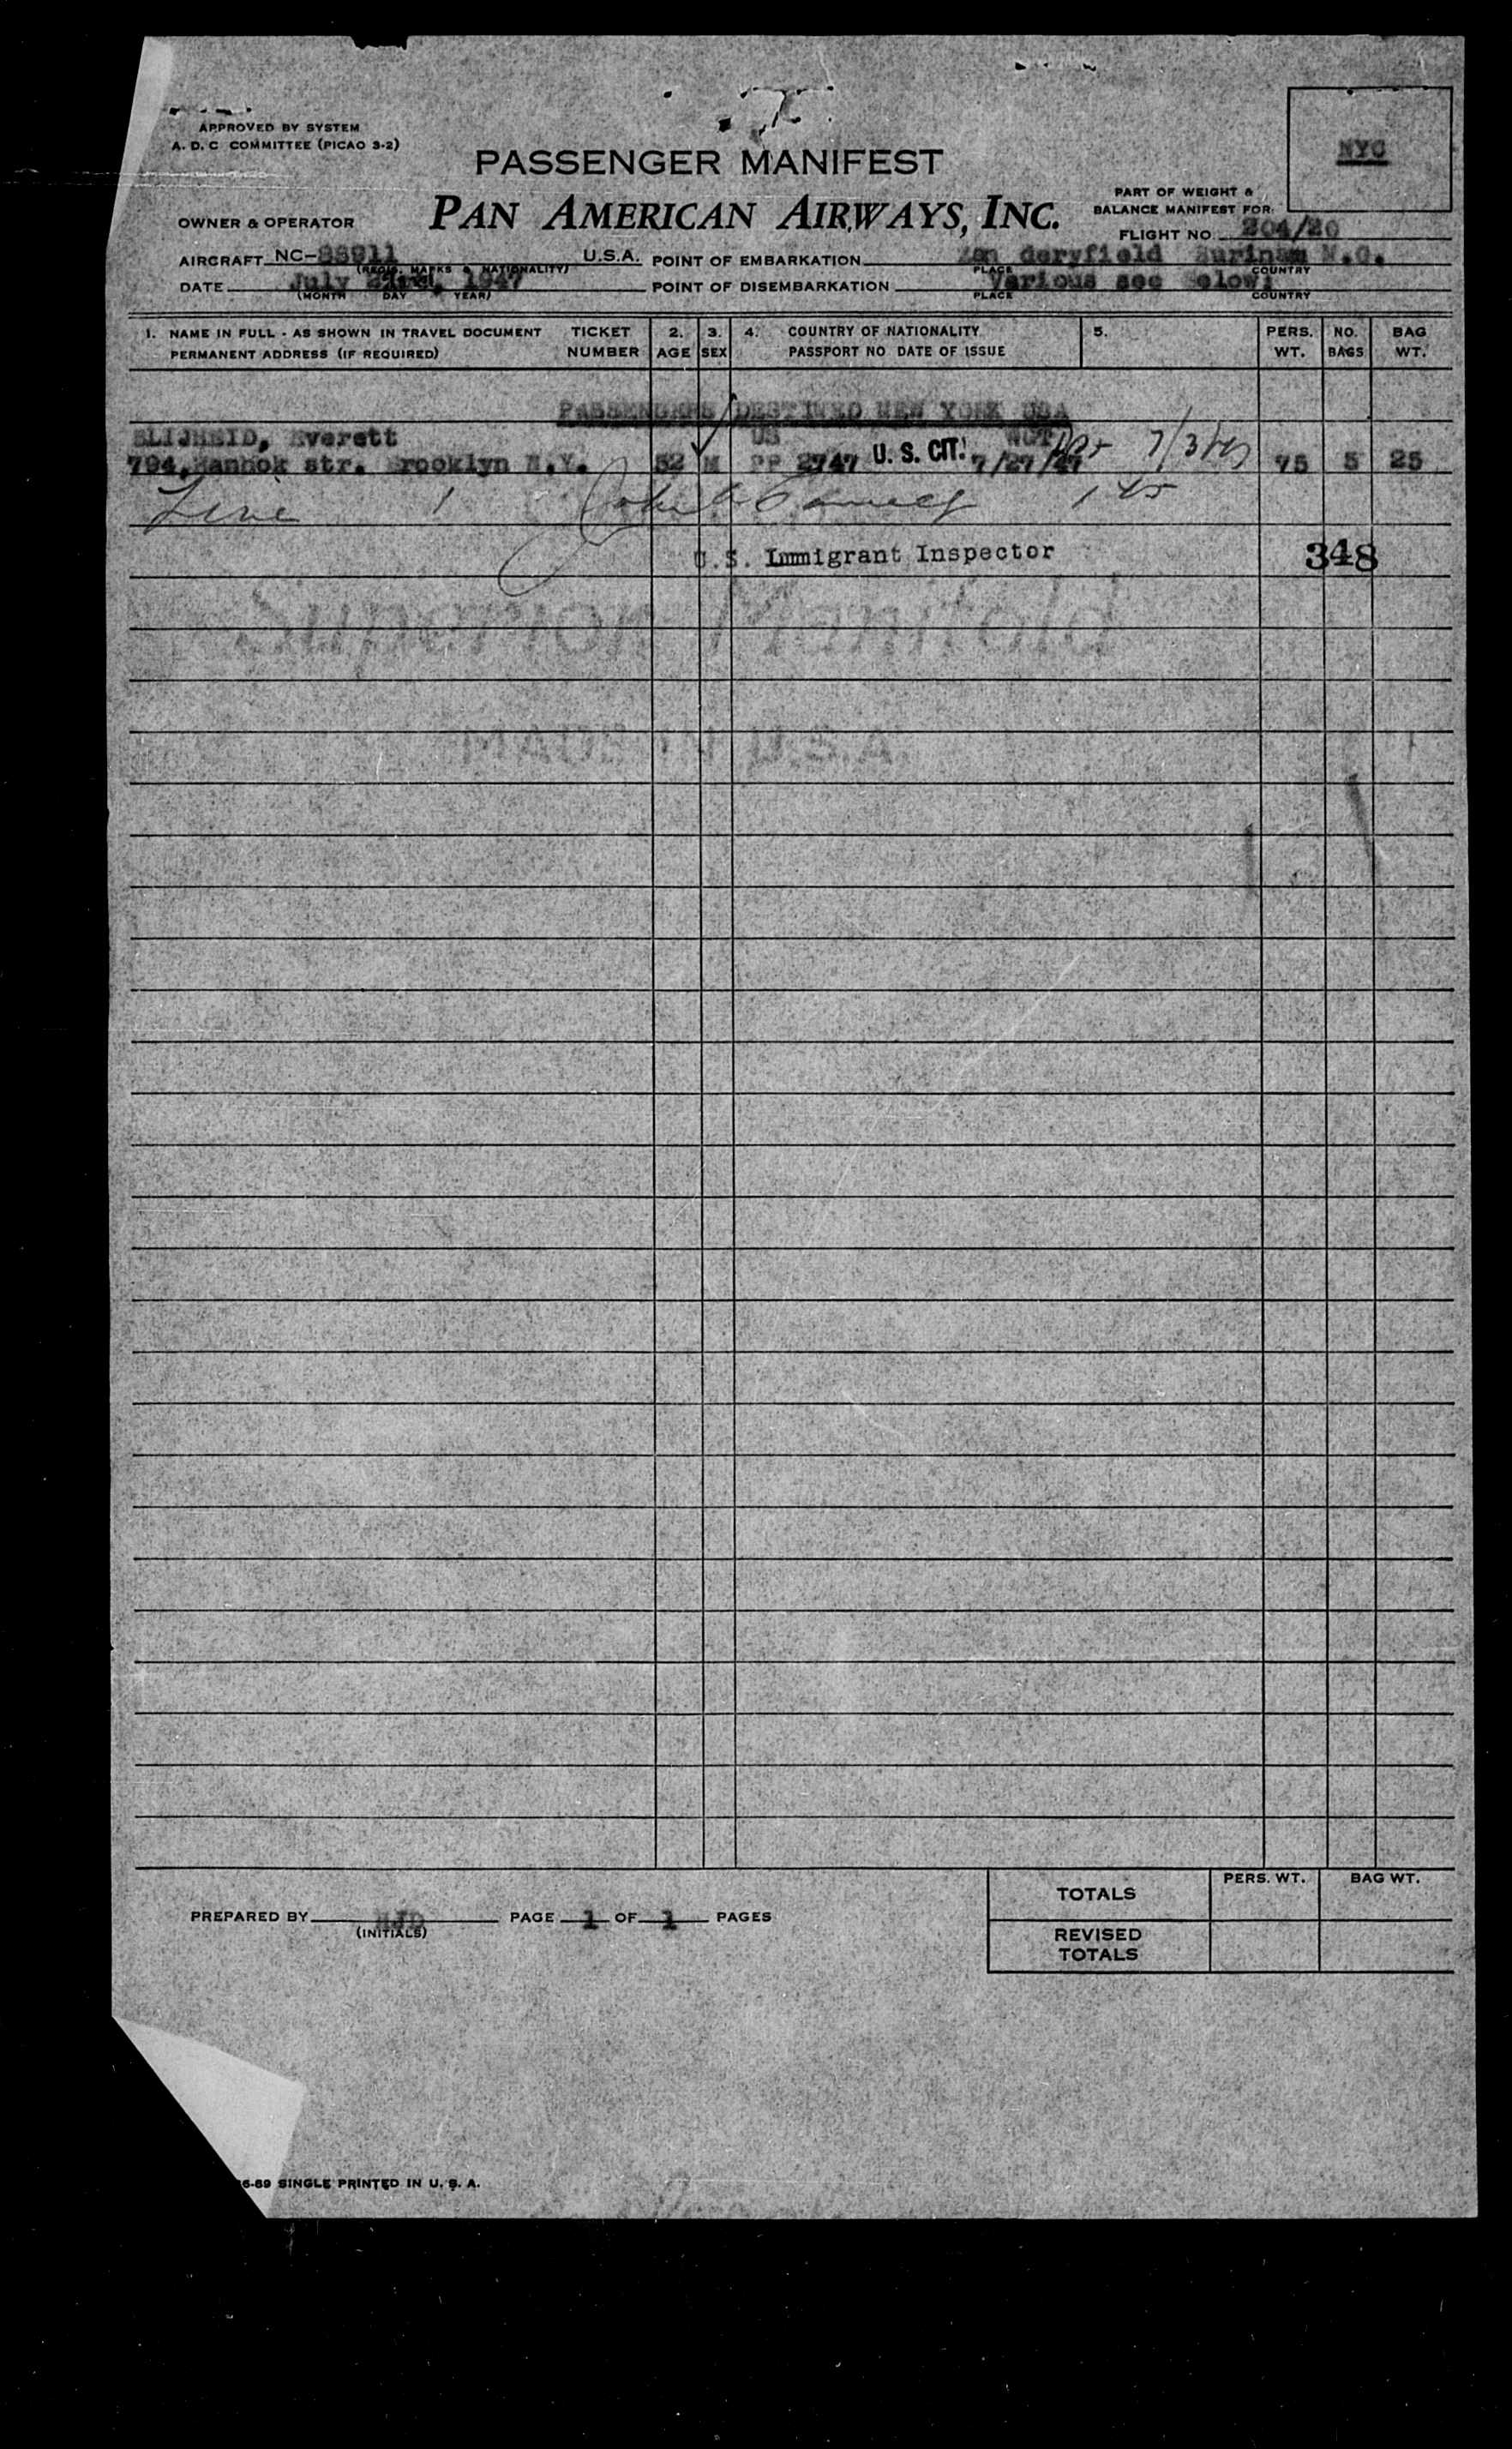 APPROVED BY SYSTEM
A. D. C COMMITTEE (PICAO 3-2)
NYC
PASSENGER MANIFEST
PAN AMERICAN AIRWAYS, INC.
PART OF WEIGHT &
BALANCE MANIFEST FOR:
OWNER & OPERATOR
FLIGHT NO. 204/20
AIRCRAFT NC-88911 U.S.A. POINT OF EMBARKATION Zan deryfield Surinam N.G.
(REGIS. MARKS & NATIONALITY) PLACE COUNTRY
DATE July 1947 POINT OF DISEMBARKATION Various see below;
(MONTH DAY YEAR) PLACE COUNTRY
1. NAME IN FULL - AS SHOWN IN TRAVEL DOCUMENT TICKET 2. 3. 4. COUNTRY OF NATIONALITY 5. PERS. NO. BAG
PERMANENT ADDRESS (IF REQUIRED) NUMBER AGE SEX PASSPORT NO DATE OF ISSUE WT. BAGS WT.
PASSENGERS DESTINED NEW YORK USA
Everett US
794, str. Brooklyn N.Y. 52 M PP 2747 U. S. CIT. 7/27/47 75 5 25
U.S. Immigrant Inspector 348
Superior Manifold
MADE IN U.S.A.
TOTALS PERS. WT. BAG WT.
PREPARED BY PAGE 1 OF 1 PAGES
(INITIALS)
REVISED
TOTALS
6-69 SINGLE PRINTED IN U. S. A.